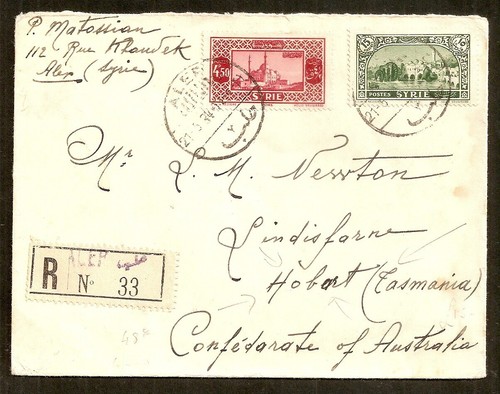 P. Matossian
112 Rue Khandek
Alep (Syrie)
4,50
SYRIE
15
POSTES SYRIE
ALEP
حلب
Mr L. M. Newton
Lindisfarne
Hobart (Tasmania)
Confédarate of Australia
ALEP حلب
R Nº 33